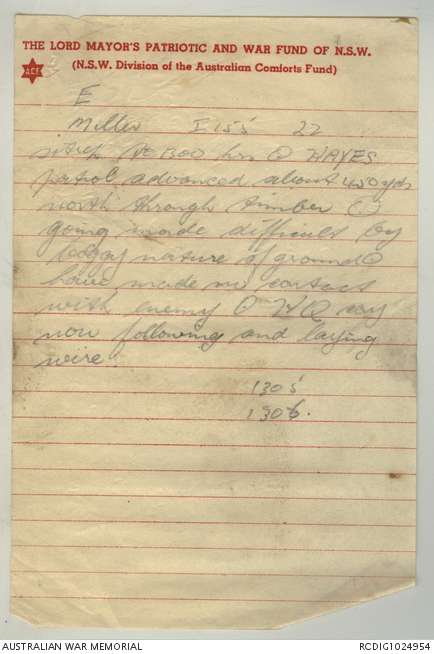 THE LORD MAYOR'S PATRIOTIC AND WAR FUND OF N.S.W.
(N.S.W. Division of the Australian Comforts Fund)
ACF
E
Miller I 155 22
sitrep 1300 hrs O HAYES
patrol advanced about 450 yds
north through timber O
going made difficult by
boggy nature of ground O
have made no contact
with enemy O HQ coy
now following and laying
wire
1305
1306.
AUSTRALIAN WAR MEMORIAL
RCDIG1024954